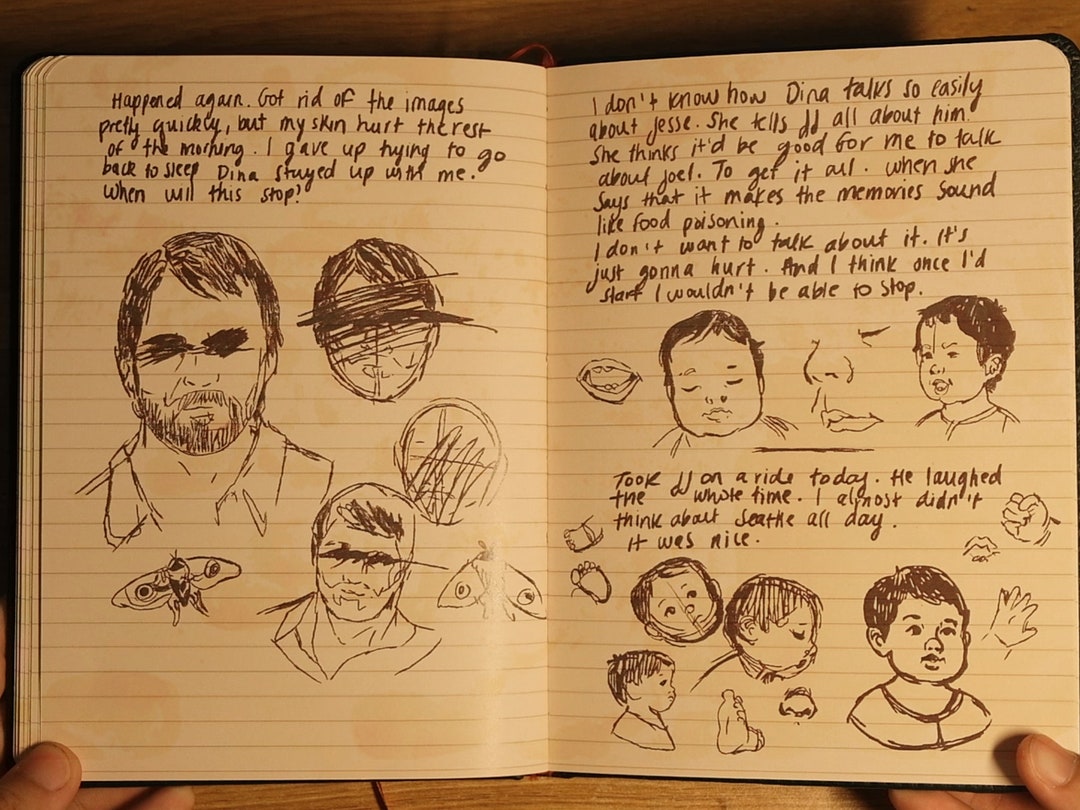 Happened again. Got rid of the images
pretty quickly, but my skin hurt the rest
of the morning. I gave up trying to go
back to sleep Dina stayed up with me.
When will this stop?
I don't know how Dina talks so easily
about Jesse. She tells JJ all about him.
She thinks it'd be good for me to talk
about Joel. To get it out. when she
says that it makes the memories sound
like food poisoning.
I don't want to talk about it. It's
just gonna hurt. And I think once I'd
start I wouldn't be able to stop.
Took JJ on a ride today. He laughed
the whole time. I almost didn't
think about Seattle all day.
It was nice.